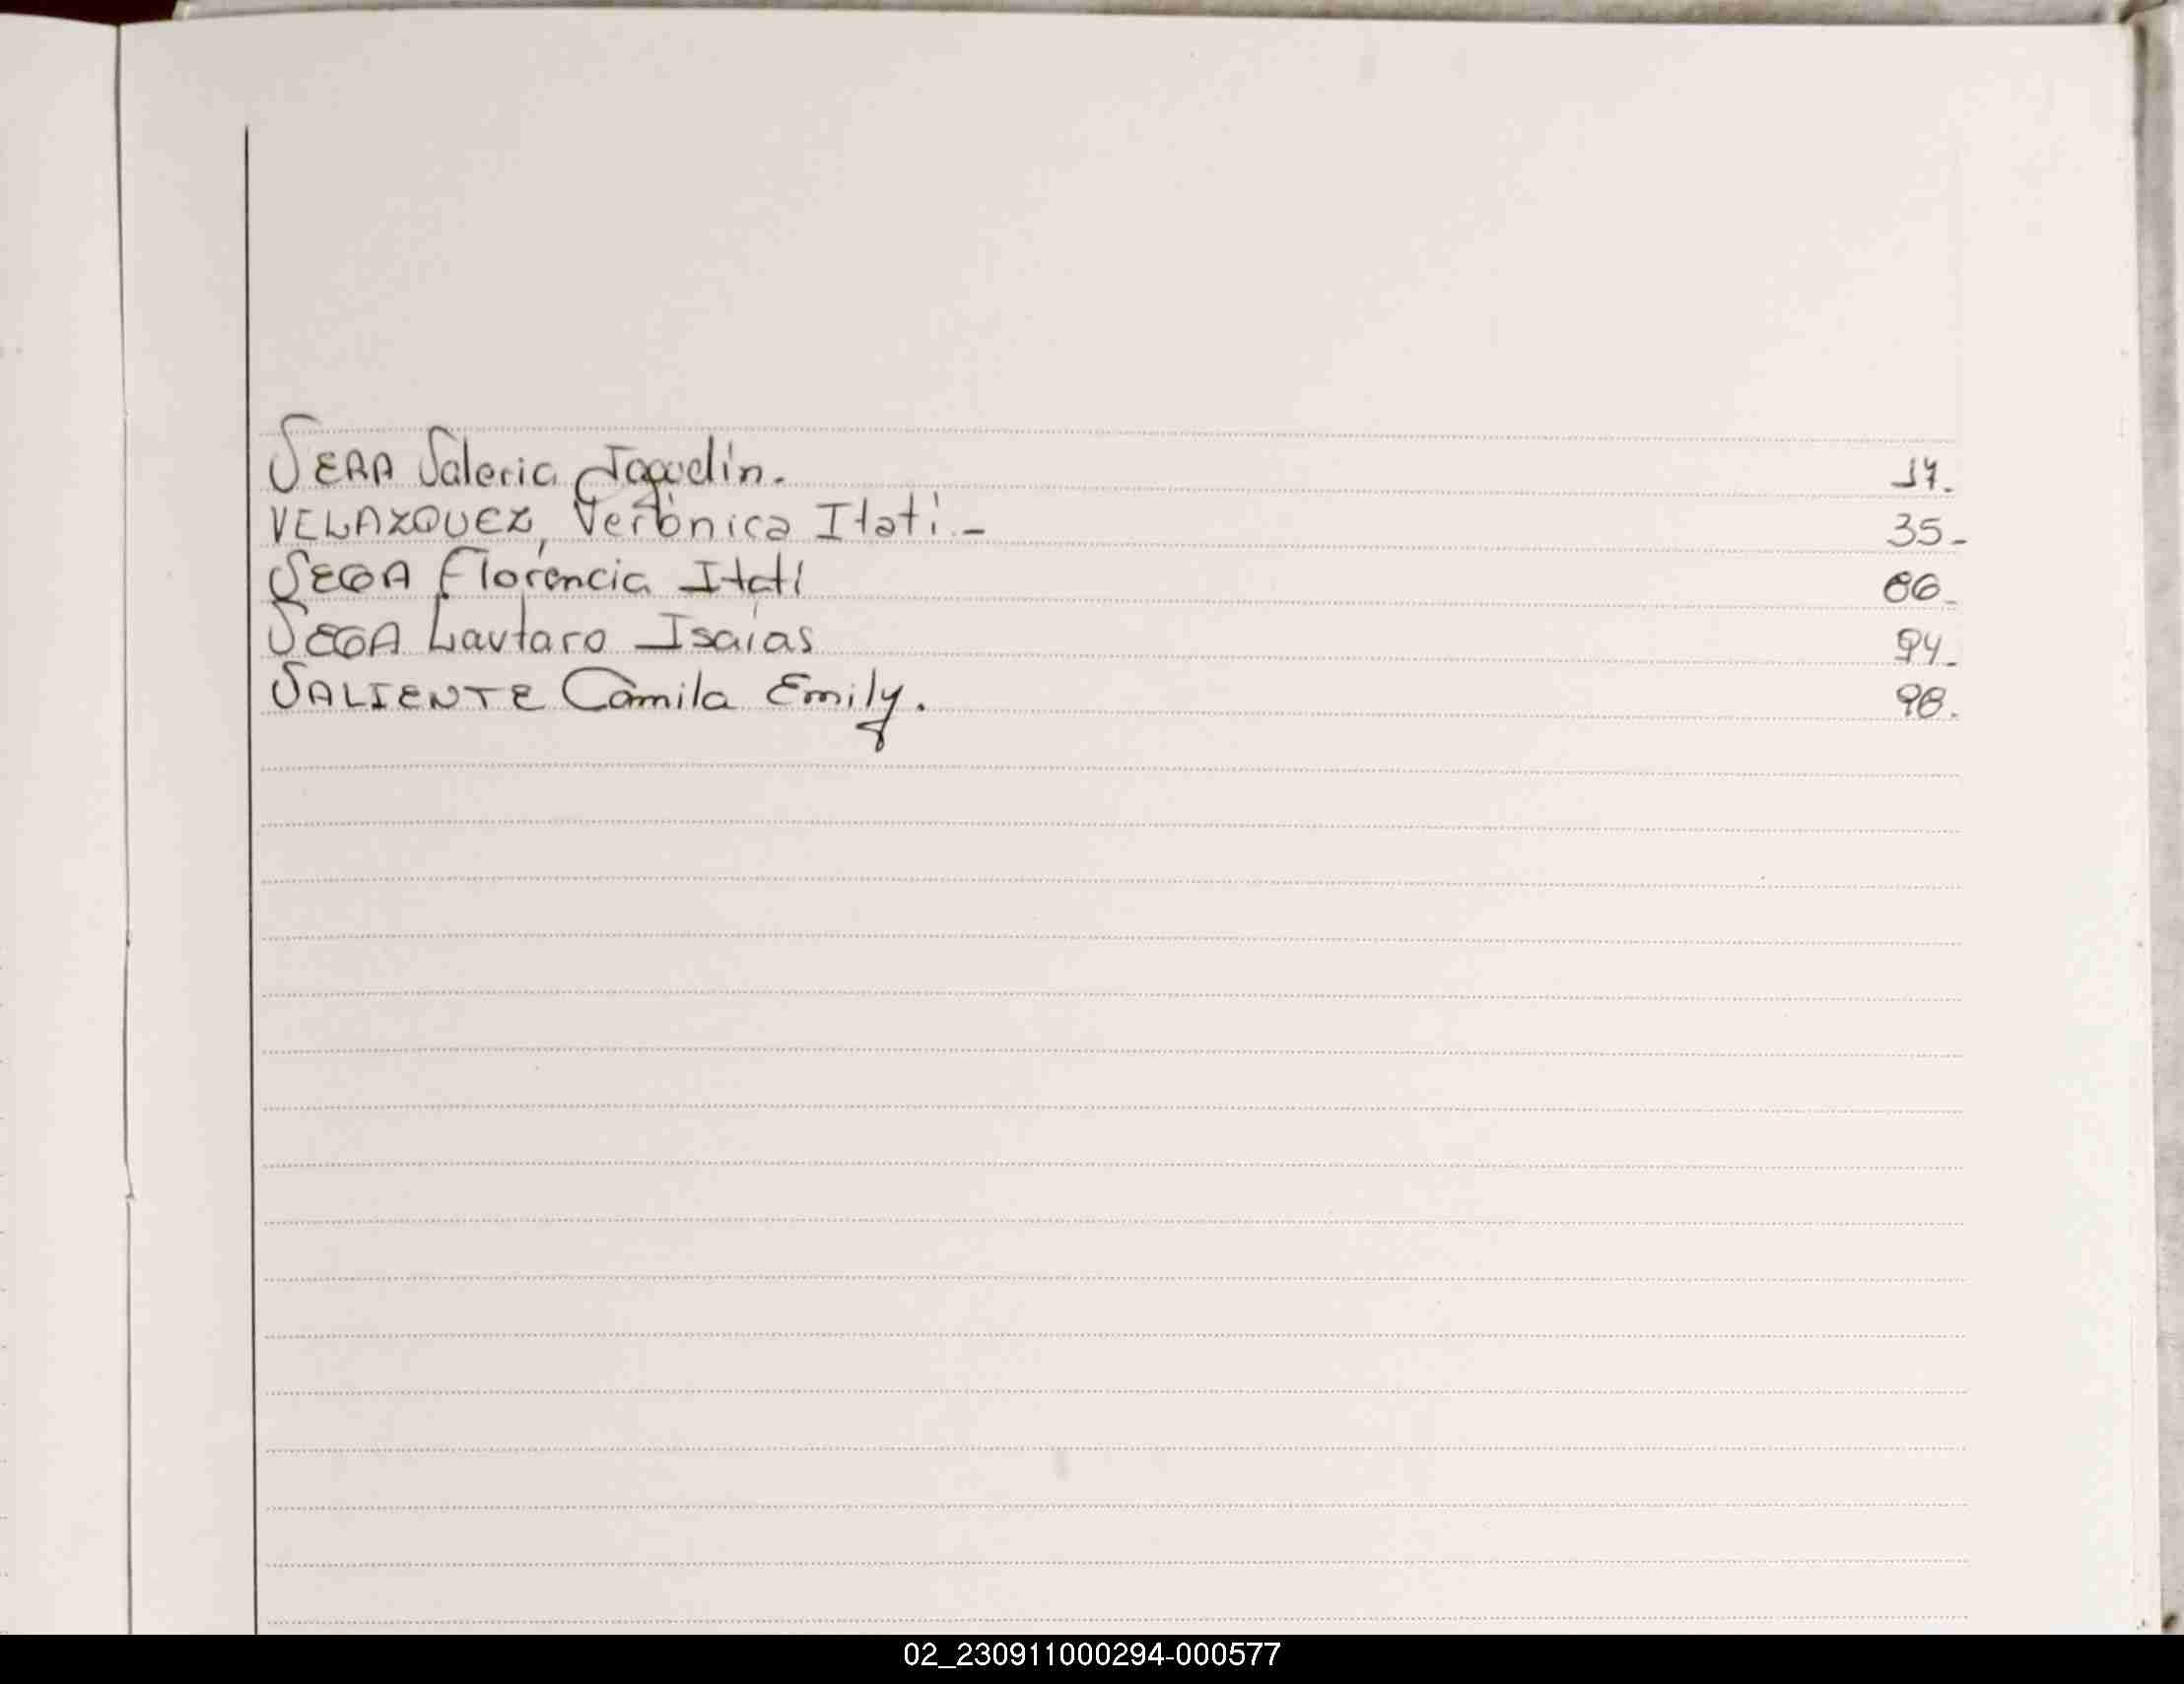 VERA Valeria Jaquelin. 17.
VELAZQUEZ, Verónica Itatí.- 35-
VEGA Florencia Itatí 86-
VEGA Lautaro Isaías 94-
VALIENTE Camila Emily. 98.
02_230911000294-000577